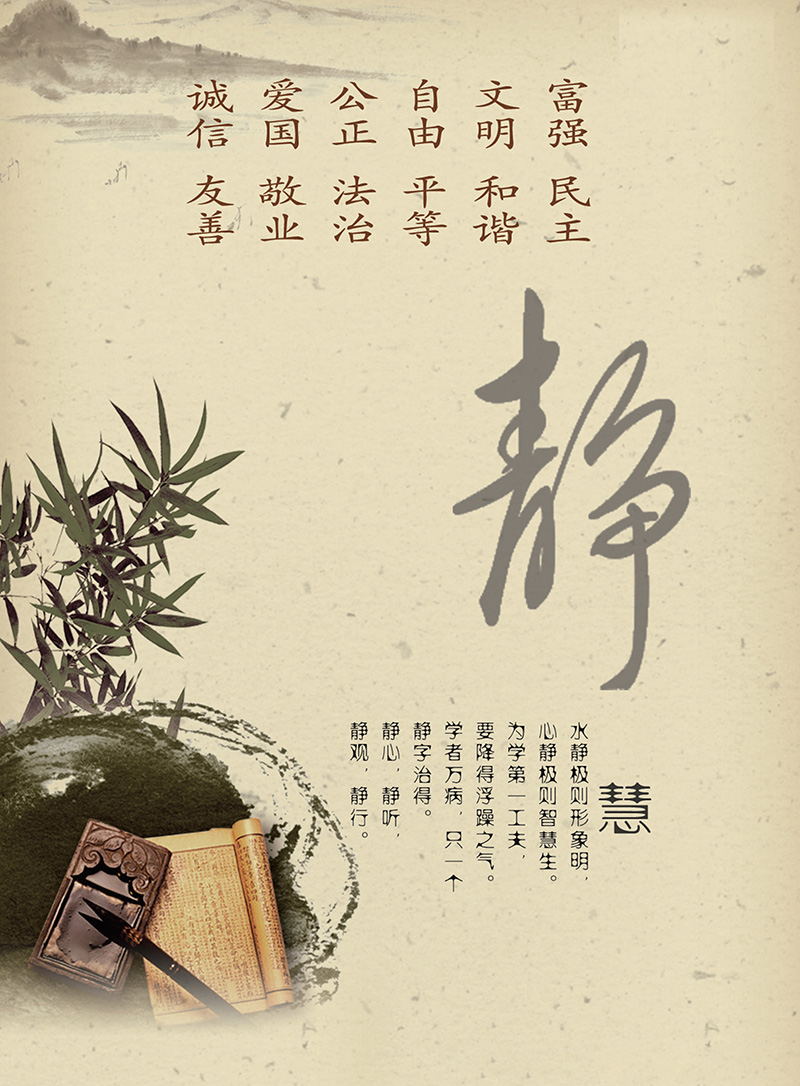 富强 民主
文明 和谐
自由 平等
公正 法治
爱国 敬业
诚信 友善
静
慧
水静极则形象明，
心静极则智慧生。
为学第一工夫，
要降得浮躁之气。
学者万病，只一个
静字治得。
静心，静听，
静观，静行。